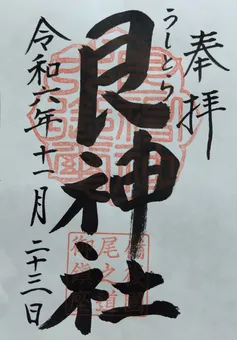 奉拝
うしとら
艮神社
令和六年十一月二十三日